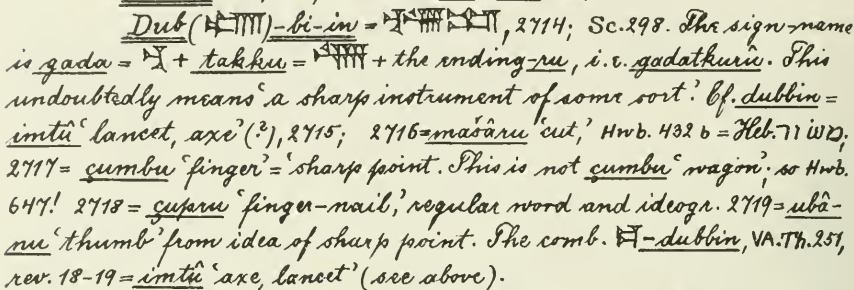 Dub(𒁾)-bi-in = , 2714; Sc. 298. The sign-name
is gada = + takku = + the ending -ru, i.e. gadatkurû. This
undoubtedly means 'a sharp instrument of some sort.' Cf. dubbin =
imtû 'lancet, axe' (?), 2715; 2716 = mašâru 'cut,' Hwb. 432 b = Heb.
2717 = çumbu 'finger' = 'sharp point. This is not çumbu 'wagon'; so Hwb.
647! 2718 = çupru 'finger-nail,' regular word and ideogr. 2719 = ubâ-
nu 'thumb' from idea of sharp point. The comb. -dubbin, VA.Th. 251,
rev. 18-19 = imtû 'axe, lancet' (see above).